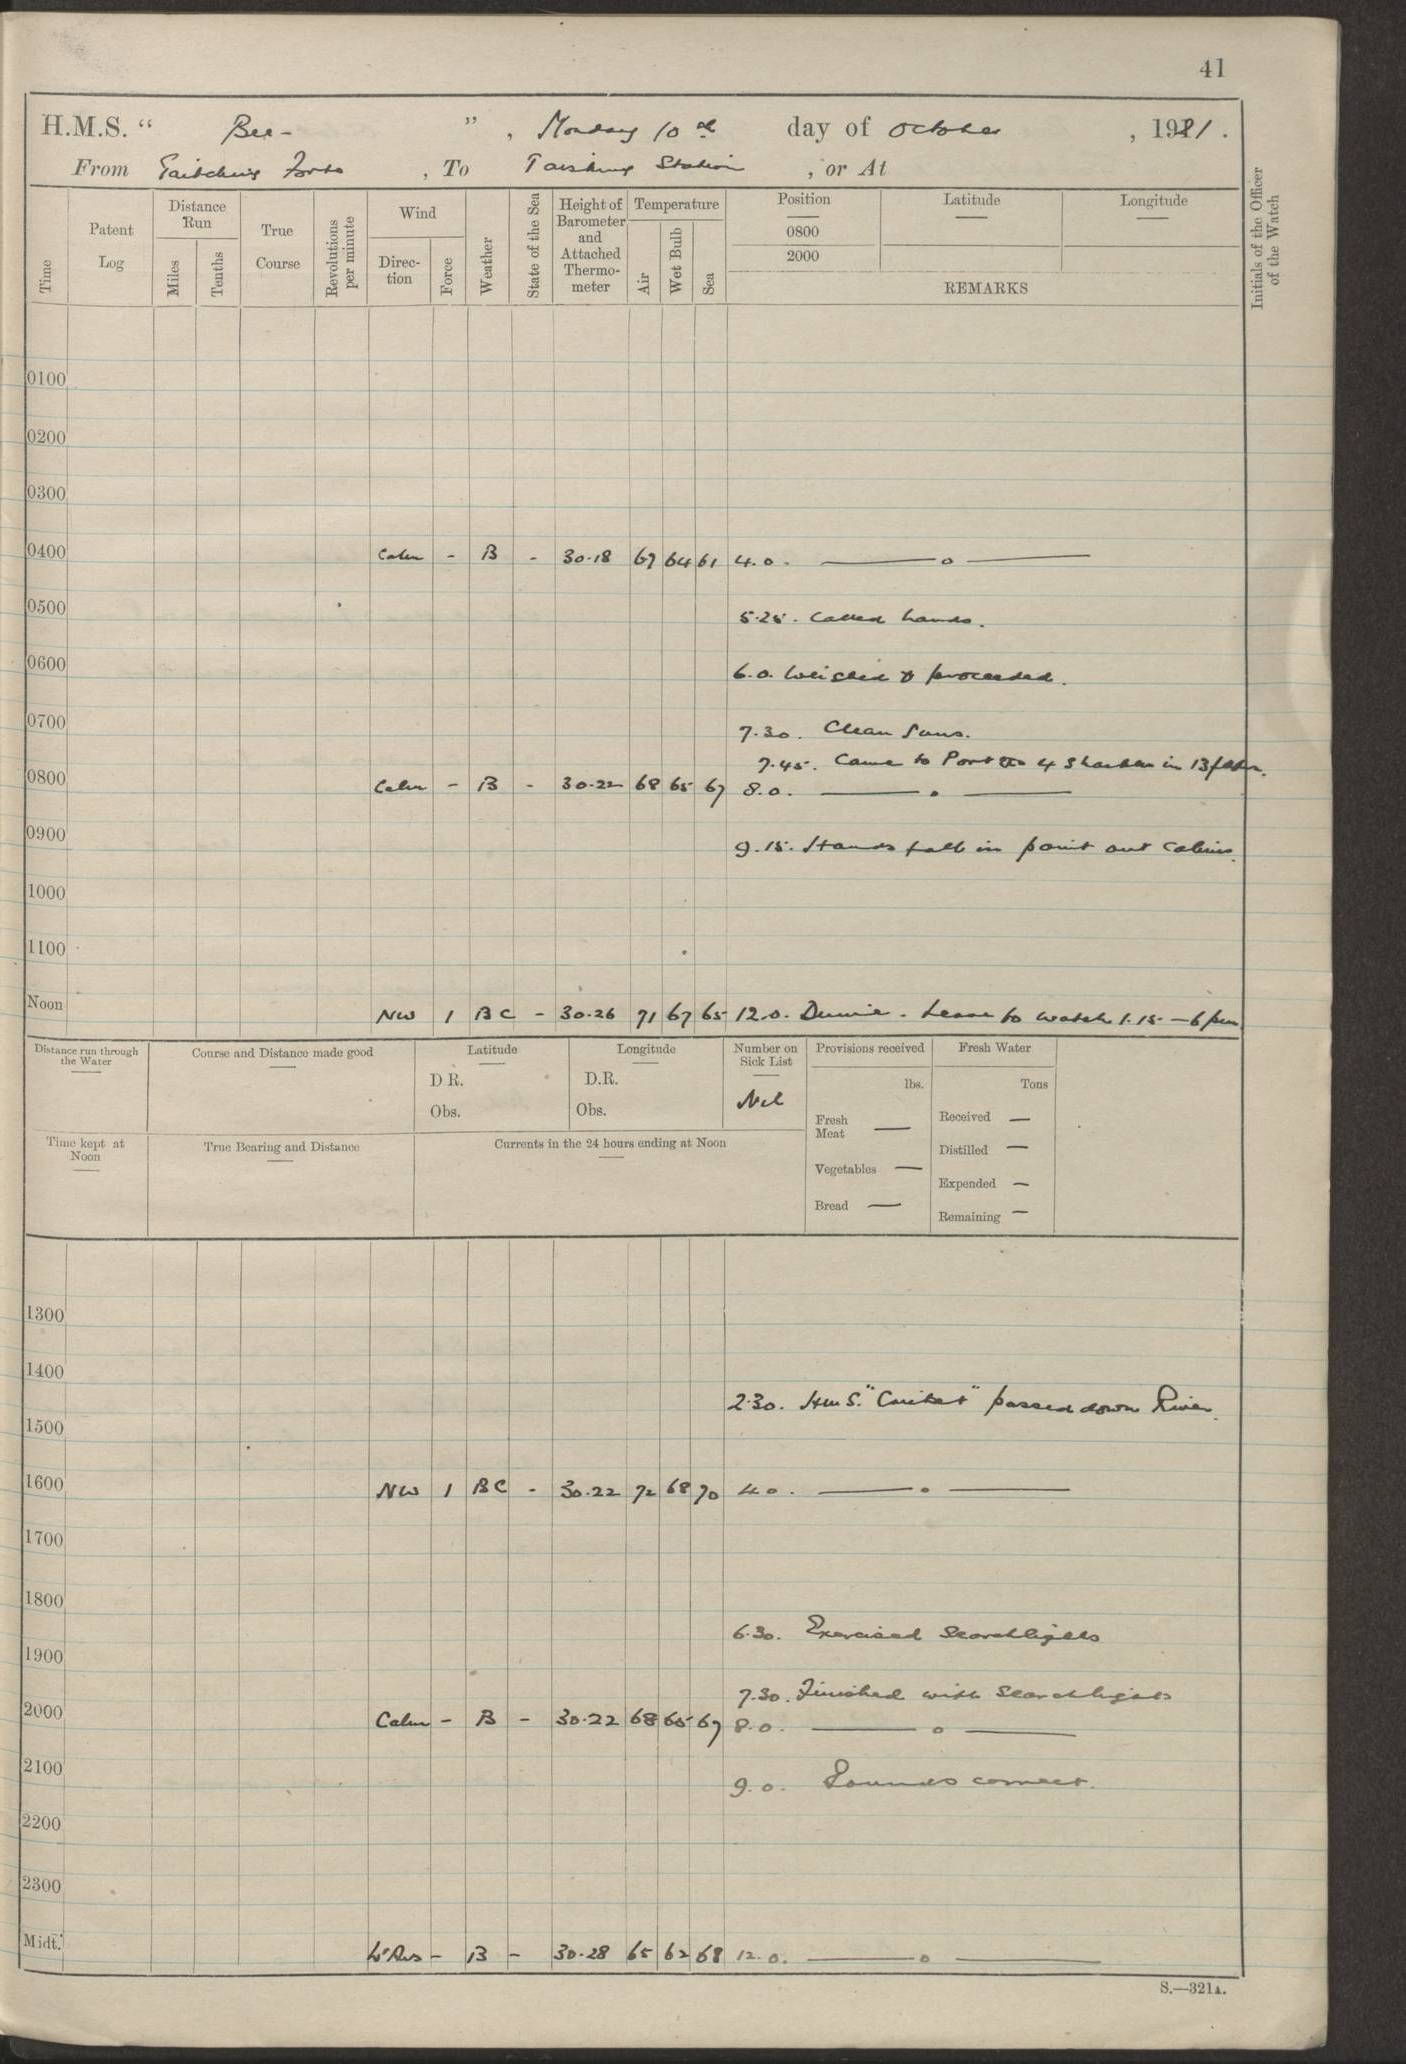 41
H.M.S. “ Bee - ” , Monday 10th day of October , 1921 .
From Taitching Forts , To Taishing Station , or At
Time
Patent Log
Distance Run
Miles
Tenths
True Course
Revolutions per minute
Wind
Direc-tion
Force
Weather
State of the Sea
Height of Barometer and Attached Thermo-meter
Temperature
Air
Wet Bulb
Sea
Position
0800
2000
Latitude
Longitude
REMARKS
Initials of the Officer of the Watch
0100
0200
0300
0400 Calm - B - 30.18 67 64 61 4.0. —— o ——
0500 5.25. Called hands.
0600 6.0. Weighed & proceeded.
0700 7.30. Clean Guns.
7.45. Came to Port 4 Shackles in 13 fthm.
0800 Calm - B - 30.22 68 65 67 8.0. —— . ——
0900 9.15. Hands fall in paint out Cabins.
1000
1100
Noon NW 1 BC - 30.26 71 67 65 12.0. Dinner. Leave to watch 1.15 — 6 pm
Distance run through the Water
Course and Distance made good
Latitude
D R.
Obs.
Longitude
D.R.
Obs.
Number on Sick List
Nil
Provisions received
lbs.
Fresh Meat —
Vegetables —
Bread —
Fresh Water
Tons
Received —
Distilled —
Expended —
Remaining —
Time kept at Noon
True Bearing and Distance
Currents in the 24 hours ending at Noon
1300
1400
2.30. HMS. "Cricket" passed down River.
1500
1600 NW 1 BC - 30.22 72 68 70 4.0. —— . ——
1700
1800
6.30. Exercised Searchlights
1900
7.30. Finished with Searchlights
2000 Calm - B - 30.22 68 65 67 8.0. —— o ——
2100 9.0. Rounds correct.
2200
2300
Midt. - B - 30.28 65 62 68 12.0. —— o ——
S.—321A.